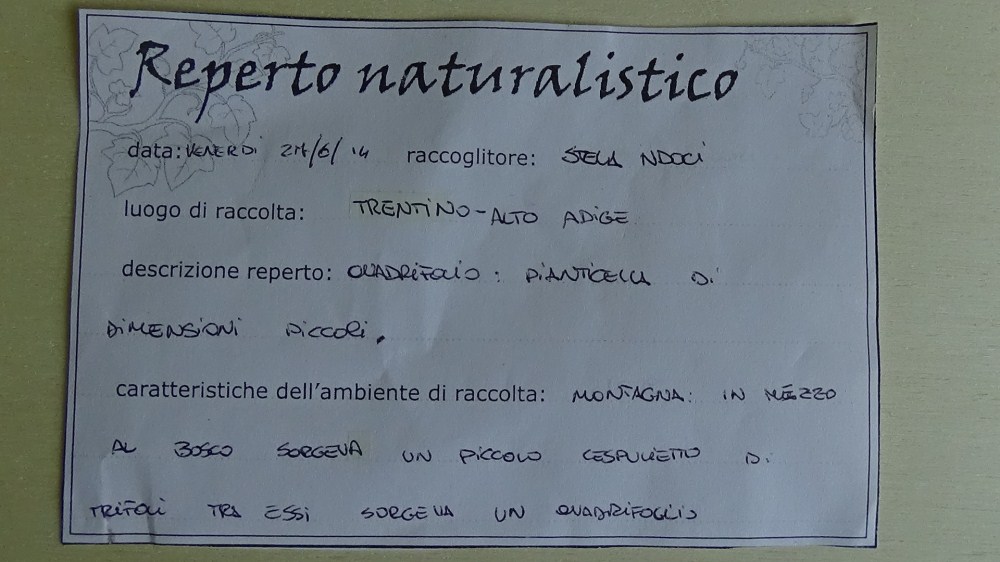 Reperto naturalistico
data: VENERDI 27/6/'14 raccoglitore: STELA NDOCI
luogo di raccolta: TRENTINO-ALTO ADIGE
descrizione reperto: QUADRIFOLIO: PIANTICELLA DI
DIMENSIONI PICCOLI.
caratteristiche dell'ambiente di raccolta: MONTAGNA: IN MEZZO
AL BOSCO SORGEVA UN PICCOLO CESPULIETTO DI
TRIFOLI TRA ESSI SORGEVA UN QUADRIFOGLIO